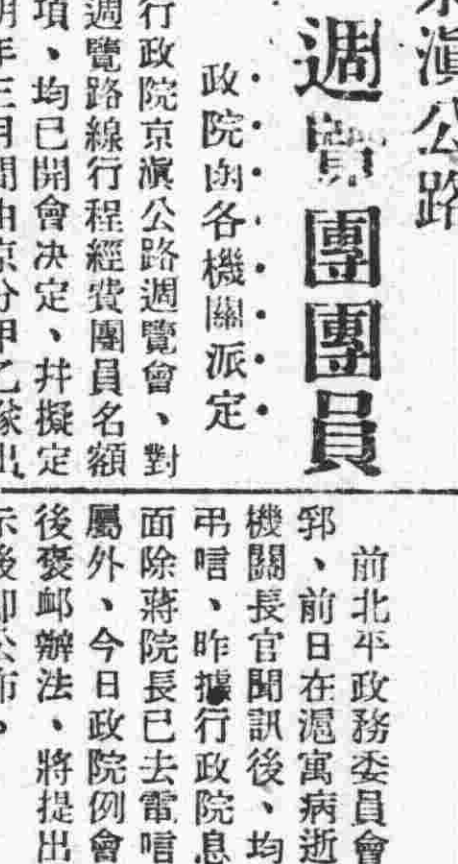 京滇公路
週覽團團員
政院函各機關派定
行政院京滇公路週覽會、對
週覽路線行程經費團員名額
項、均已開會決定、幷擬定
明年三月間由京分甲乙隊出
前北平政務委員會
郛、前日在滬寓病逝
機關長官聞訊後、均
弔唁、昨據行政院息
面除蔣院長已去電唁
屬外、今日政院例會
後褒邺辦法、將提出
示後卽公布。